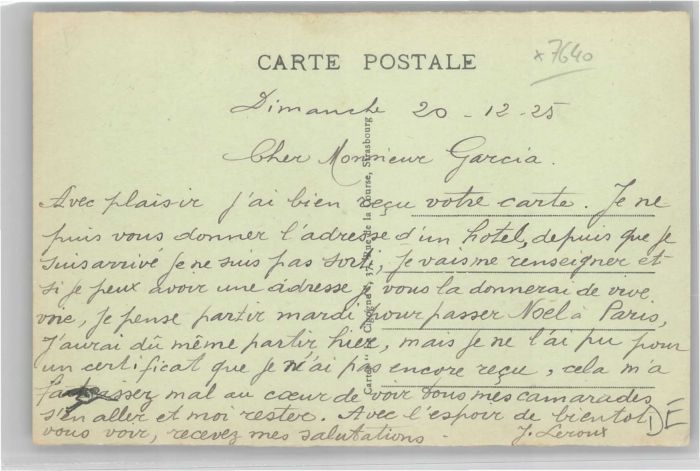 CARTE POSTALE
x7640
Dimanche 20-12-25
Cher Monsieur Garcia.
Avec plaisir j'ai bien reçu votre carte. Je ne
puis vous donner l'adresse d'un hotel, depuis que je
suis arrivé je ne suis pas sorti, je vais me renseigner et
si je peux avoir une adresse je vous la donnerai de vive
voie, je pense partir mardi pour passer Noël à Paris,
J'aurai dû même partir hier, mais je ne l'ai pu pour
un certificat que je n'ai pas encore reçu, cela m'a
assez mal au cœur de voir tous mes camarades
s'en aller et moi rester. Avec l'espoir de bientot
vous voir, recevez mes salutations. J. Leroux
DE
37, Rue de la Course, Strasbourg